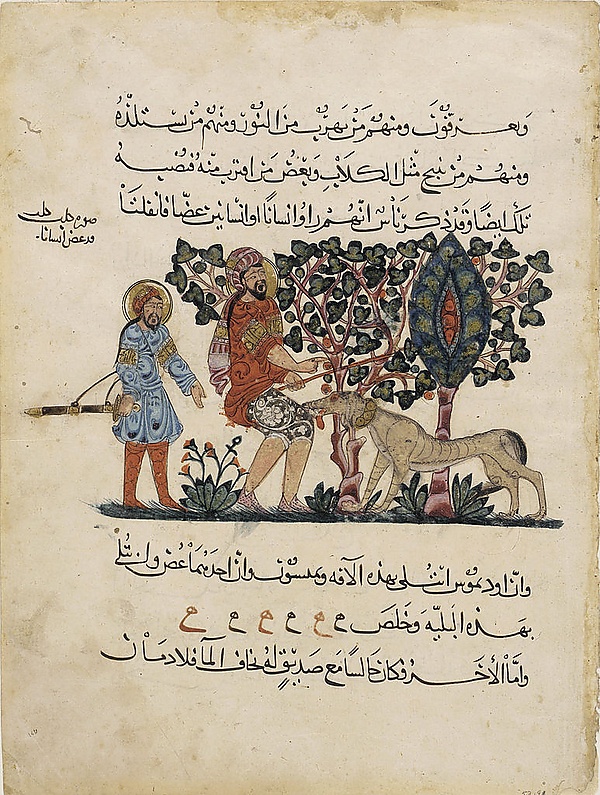 ويعرقون ومنهم من يهرب من النور ومنهم من يستلذه
ومنهم من ينبح مثل الكلاب ويعض من اقترب منه فيصيبه
تلك ايضا وقد ذكر ناس انهم راوا انسانا او انسانين عضا فانفلتا
صورة كلب كلب
قد عض انسانا
وان اوديموس ابتلى بهذه الافه وان احدهما عض وابتلى
بهذه البليه وخلص ه ه ه ه ه ه
واما الاخر فكان جالسا مع صديق له يخاف الما فلا